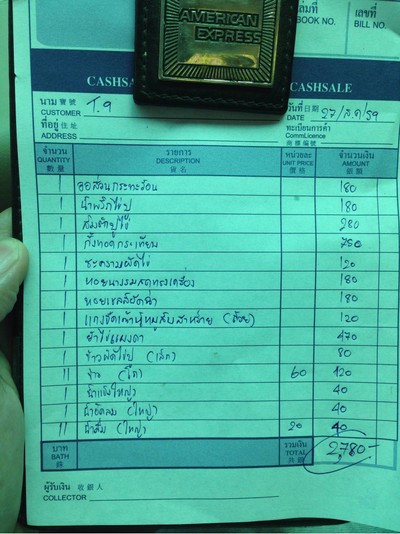 AMERICAN
EXPRESS
เล่มที่ เลขที่
BOOK NO. BILL NO.
CASHSA CASHSALE
นาม 寶號 วันที่ 日期
CUSTOMER T.9 27/ส.ค/59
ที่อยู่ 住址 ทะเบียนการค้า
ADDRESS CommLicence
商牌編號
จำนวน รายการ หน่วยละ จำนวนเงิน
QUANTITY DESCRIPTION UNIT PRICE AMOUNT
數量 貨名 價格 銀額
1 ออส่วนกระทะร้อน 180
1 น้ำพริกไข่ปู 180
1 ส้มตำปูไข่ 280
1 กุ้งทอดกระเทียม 750
1 ชะครามผัดไข่ 120
1 หอยนางรมสดทรงเครื่อง 180
1 หอยเชลล์ผัดฉ่า 180
1 แกงจืดเต้าหู้หมูสับสาหร่าย (ถ้วย) 120
1 ยำไข่แมงดา 470
1 ข้าวผัดไข่ปู (เล็ก) 80
11 ข้าว (โถ) 60 120
1 น้ำแข็งใหญ่ 40
1 น้ำอัดลม (ใหญ่) 40
11 น้ำดื่ม (ใหญ่) 20 40
บาท รวมเงิน
BATH TOTAL 2,780-
銖 共銀
ผู้รับเงิน 收銀人
COLLECTOR